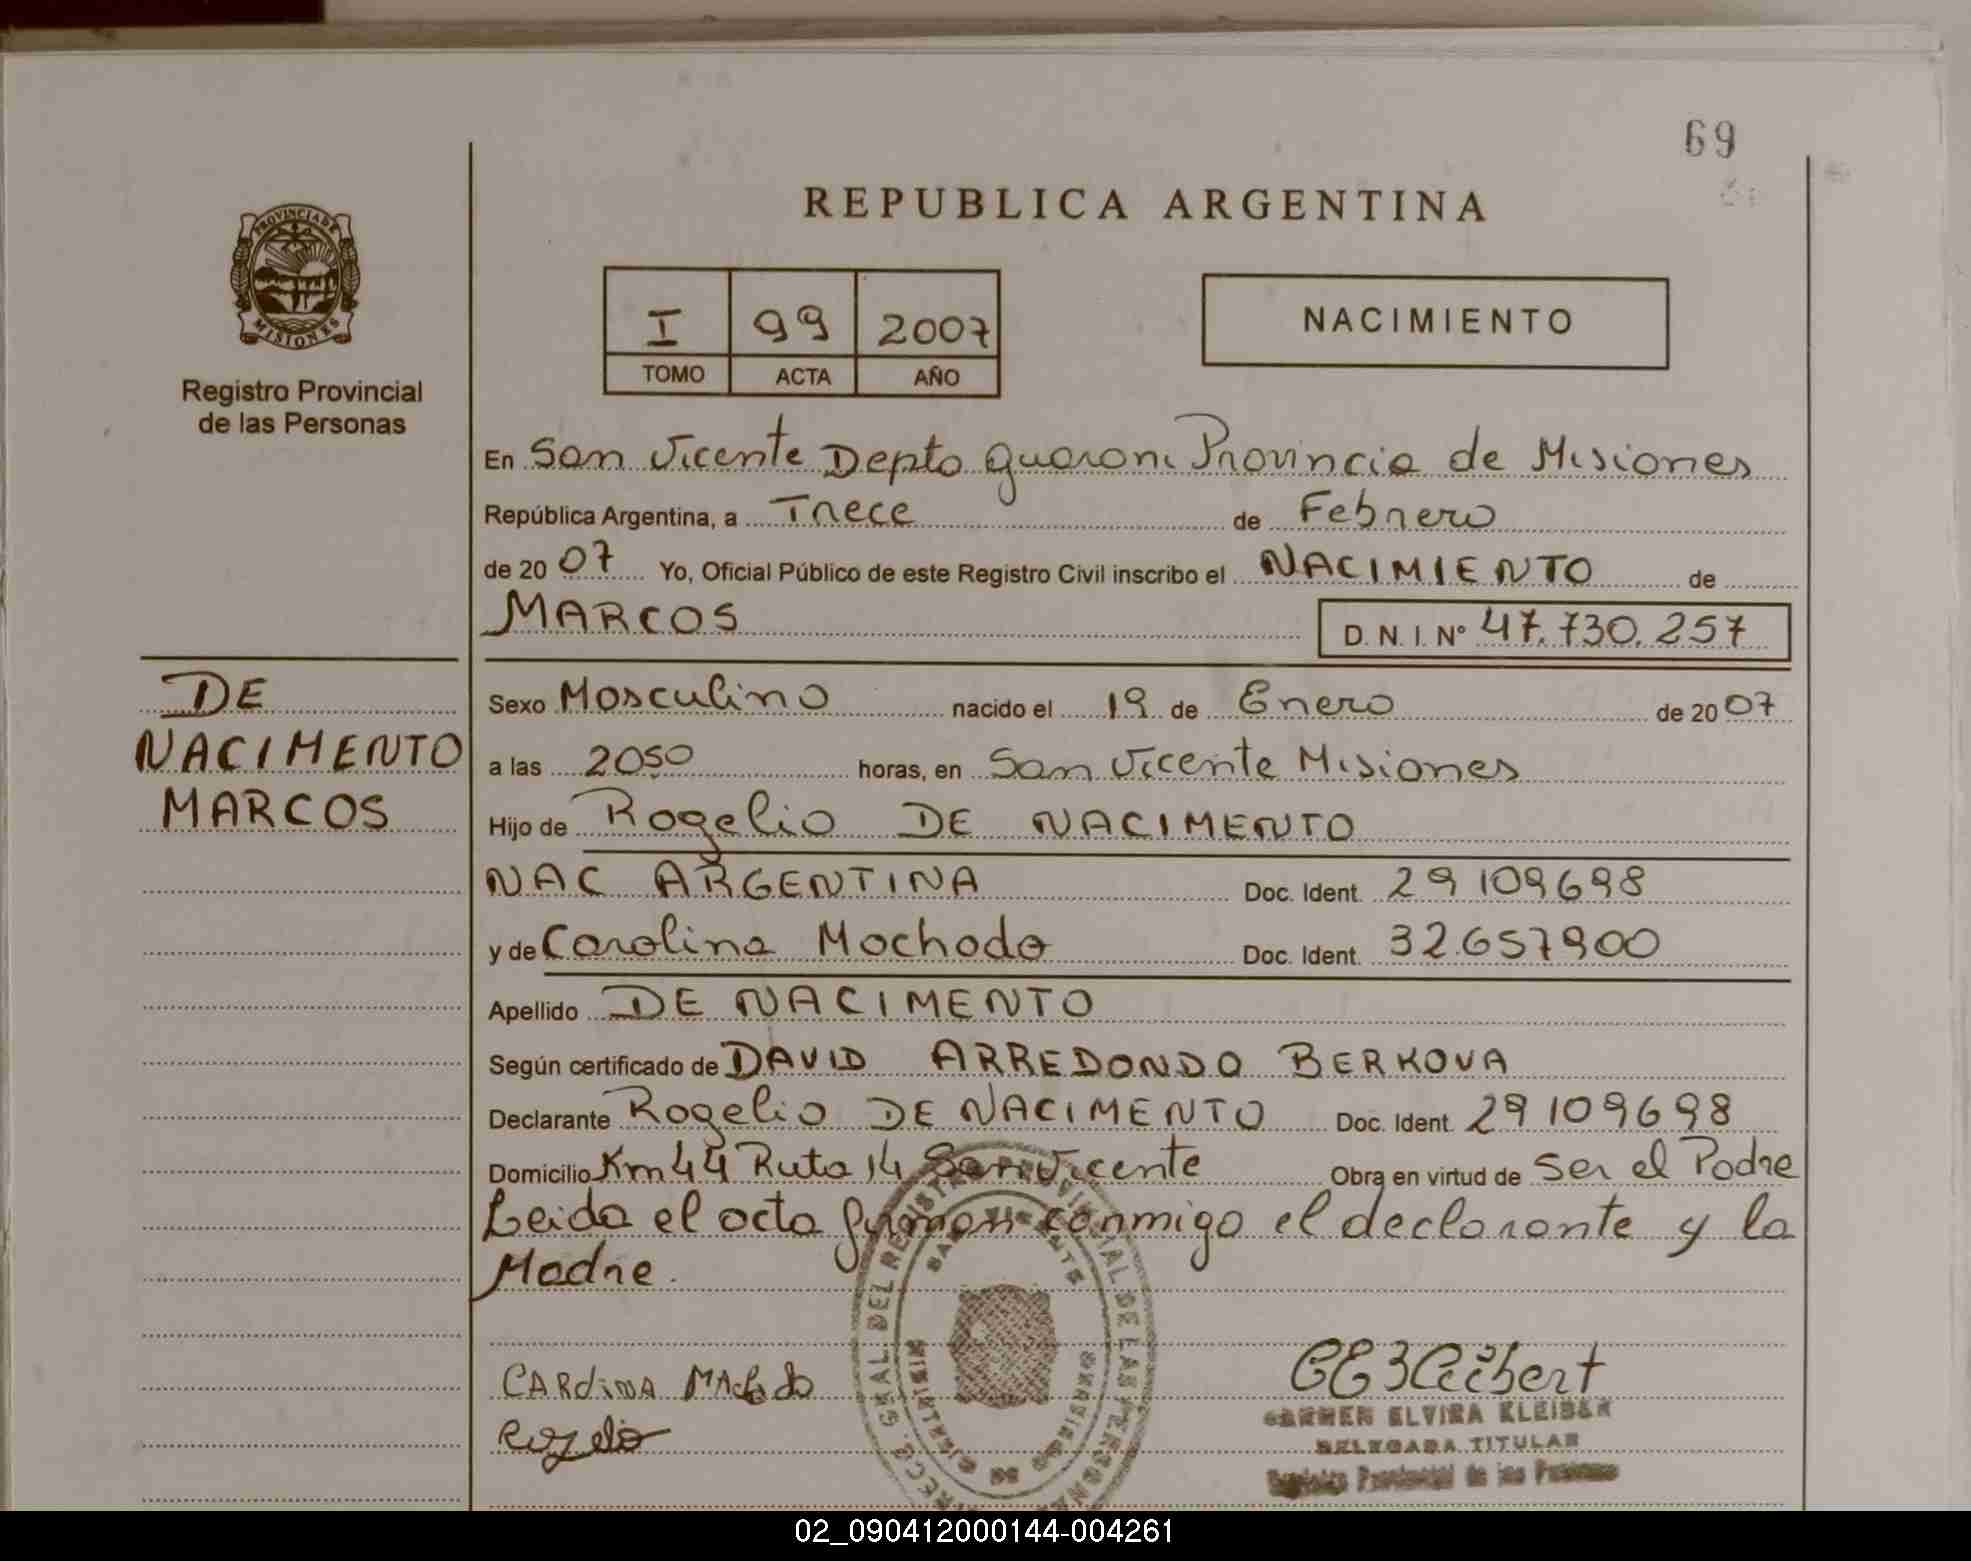 69
REPUBLICA ARGENTINA
PROVINCIA DE
MISIONES
Registro Provincial
de las Personas
I 99 2007
TOMO ACTA AÑO
NACIMIENTO
En San Vicente Depto Guarani Provincia de Misiones
República Argentina, a Trece de Febrero
de 20 07 Yo, Oficial Público de este Registro Civil inscribo el NACIMIENTO de
MARCOS D. N. I. Nº 47.730.257
DE
NACIMENTO
MARCOS
Sexo Masculino nacido el 19 de Enero de 20 07
a las 2050 horas, en San Vicente Misiones
Hijo de Rogelio DE NACIMENTO
NAC ARGENTINA Doc. Ident. 29109698
y de Carolina Machado Doc. Ident. 32.657900
Apellido DE NACIMENTO
Según certificado de DAVID ARREDONDO BERKOVA
Declarante Rogelio DE NACIMENTO Doc. Ident. 29109698
Domicilio Km 44 Ruta 14 San Vicente Obra en virtud de Ser el Padre
Leida el acta firman conmigo el declarante y la
Madre.
CAROLINA MAchado
Rogelio
SAN VICENTE
MINISTERIO DE GOBIERNO
CARMEN ELVIRA KLEIBER
DELEGADA TITULAR
Registro Provincial de las Personas
02_090412000144-004261